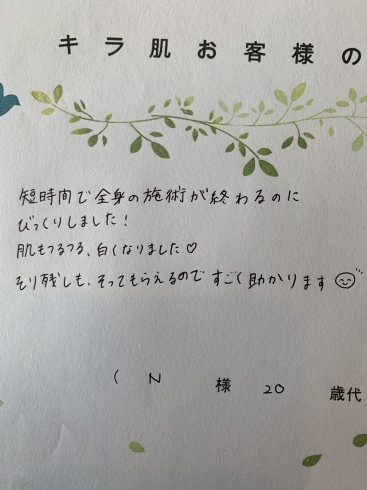 キラ肌お客様の
短時間で全身の施術が終わるのに
びっくりしました！
肌もつるつる、白くなりました♡
そり残しも、そってもらえるので すごく助かります
( N 様 20 歳代